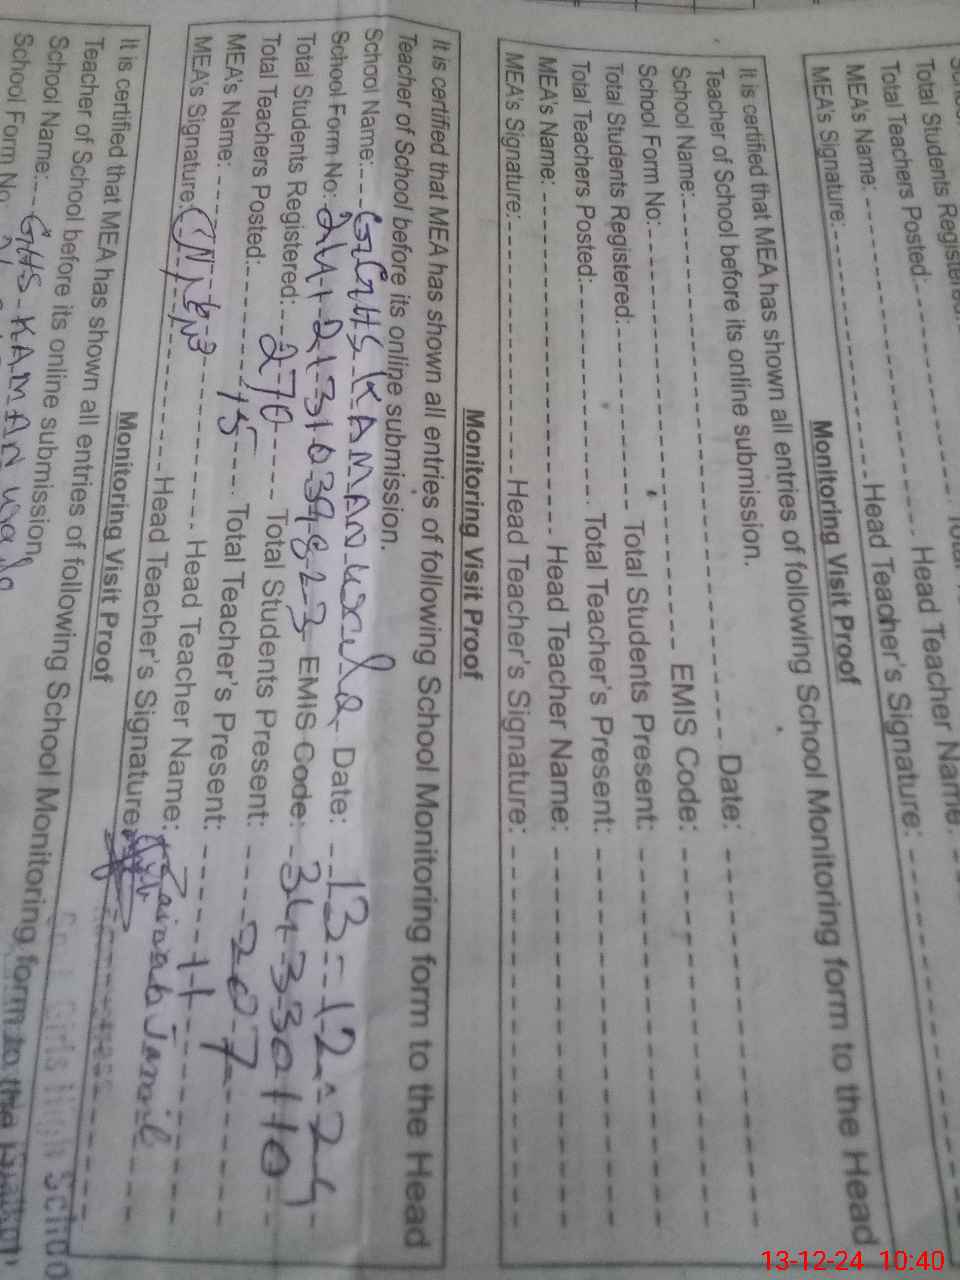 Total Students Registered:
Total Teachers Posted: Head Teacher Name:
MEA's Name: Head Teacher's Signature:
MEA's Signature:
Monitoring Visit Proof
It is certified that MEA has shown all entries of following School Monitoring form to the Head
Teacher of School before its online submission.
School Name: Date:
School Form No: EMIS Code:
Total Students Registered: Total Students Present:
Total Teachers Posted: Total Teacher's Present:
MEA's Name: Head Teacher Name:
MEA's Signature: Head Teacher's Signature:
Monitoring Visit Proof
It is certified that MEA has shown all entries of following School Monitoring form to the Head
Teacher of School before its online submission.
School Name: GGHS KAMAN wala Date: 13-12-24
School Form No: EMIS Code: 34330110
Total Students Registered: 270 Total Students Present: 207
Total Teachers Posted: 15 Total Teacher's Present: 11
MEA's Name: Head Teacher Name: Jamil
MEA's Signature: Head Teacher's Signature:
Monitoring Visit Proof
It is certified that MEA has shown all entries of following School Monitoring form to the Head
Teacher of School before its online submission.
School Name: GHS KAMAN wala
School Form No:
Girls High School
13-12-24 10:40